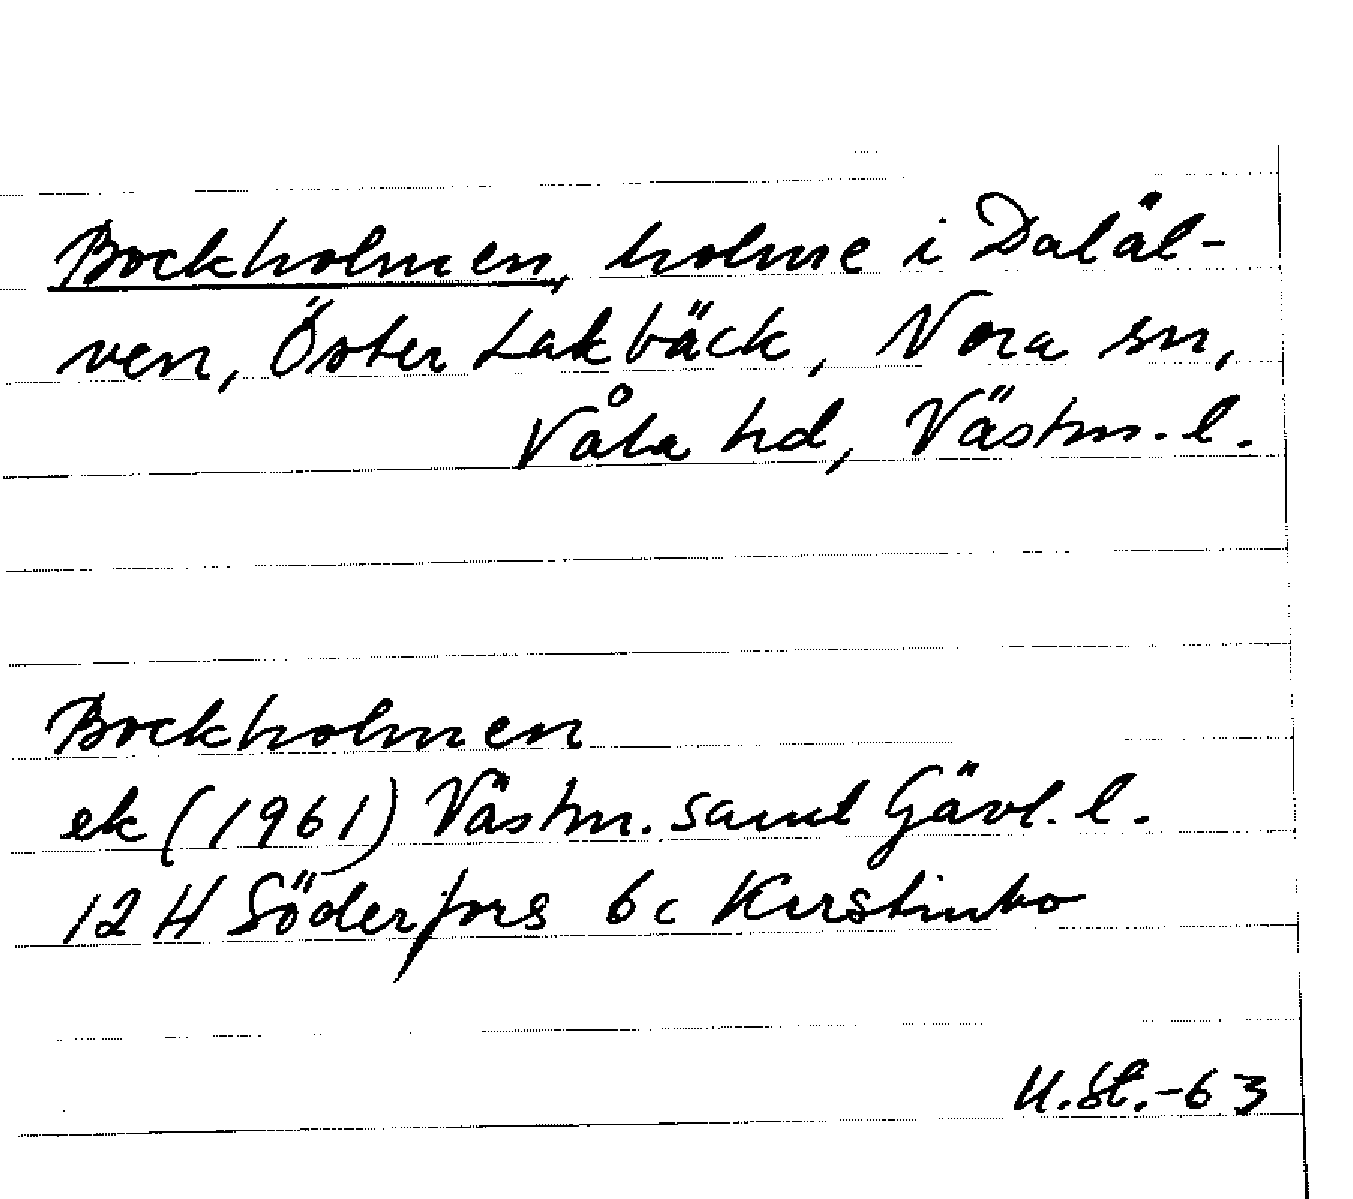 Bockholmen, holme i Daläl-
ven, Öster Lakbäck, Nora sn,
Våla hd, Västm. l.
Bockholmen
ek (1961) Västm. samt Gävl. l.
12 H Söderfors 6c Kerstinbo
U.St.-63